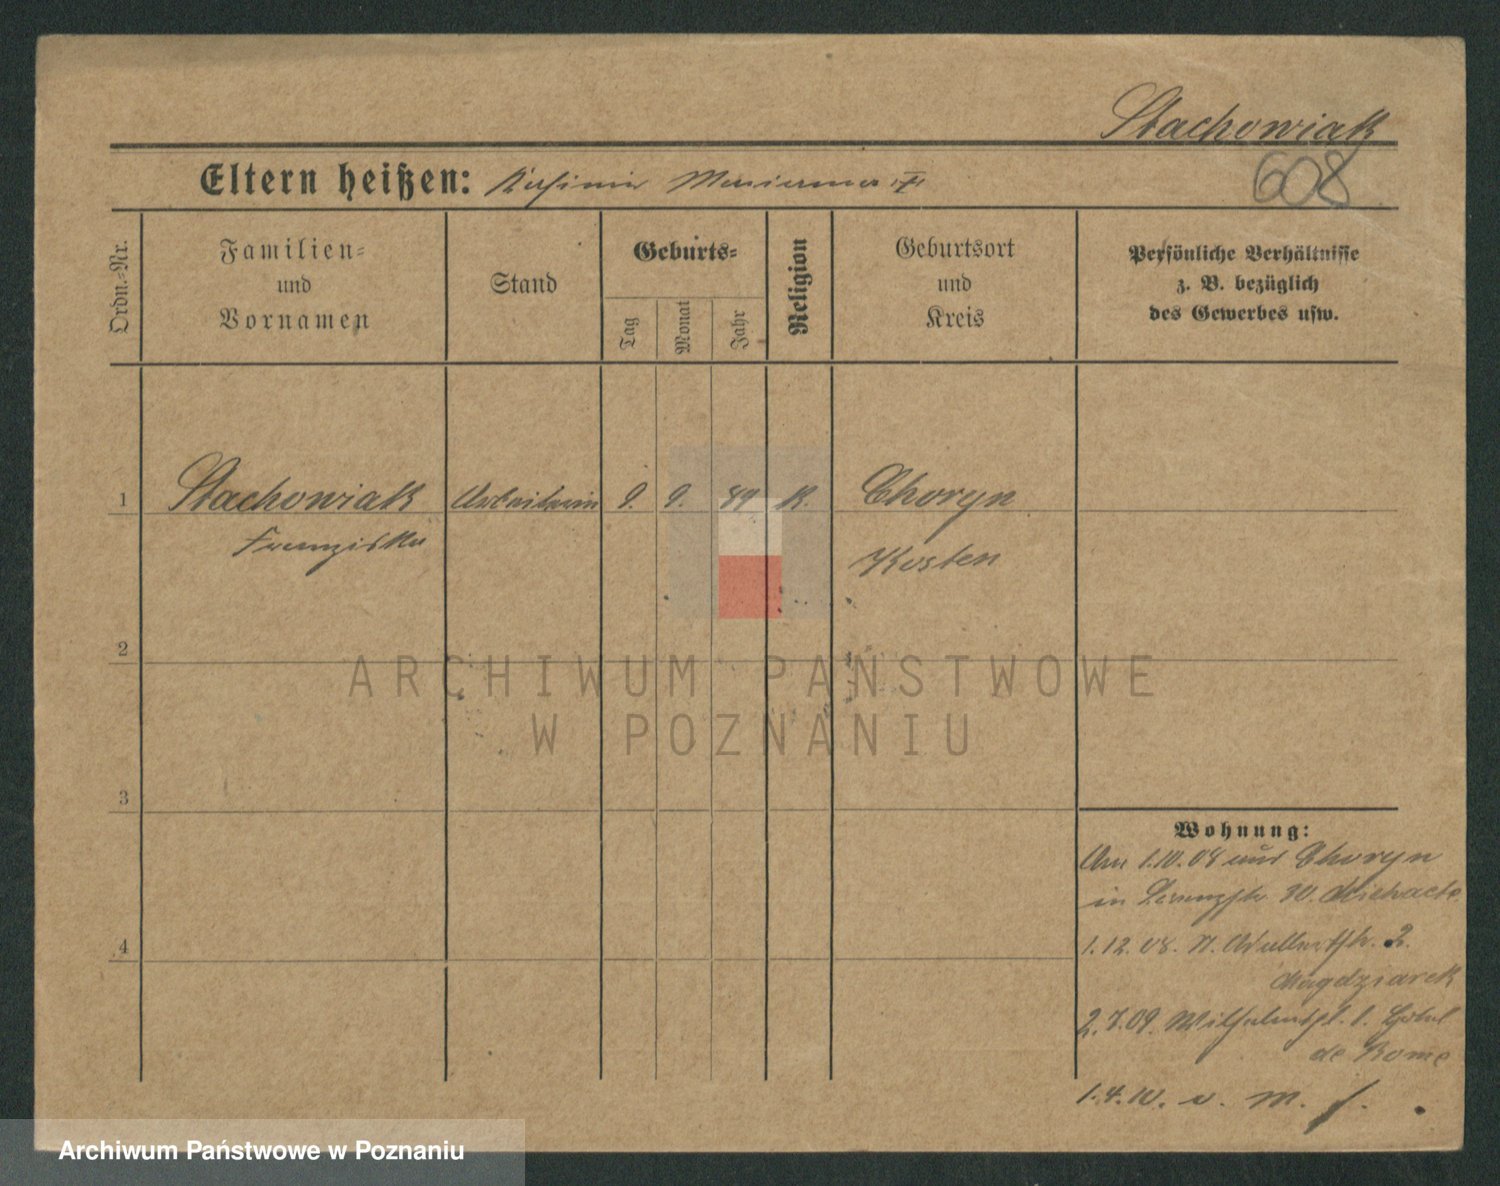 Stachowiak
608
Eltern heißen: Kasimir Marianna
Ordn.-Nr.
Familien-
und
Vornamen
Stand
Geburts-
Tag
Monat
Jahr
Religion
Geburtsort
und
Kreis
Persönliche Verhältnisse
z. B. bezüglich
des Gewerbes usw.
1
Stachowiak Arbeiterin 9. 9. 89 K. Choryn
Franziska Kosten
2
ARCHIWUM PAŃSTWOWE
W POZNANIU
3
Wohnung:
Am 1.10.08 aus Choryn
in 30.
4
1.12.08. 2.
Magdziarek
2.7.09. Wilhelmspl. 1. Hotel
de Rome
1.4.10. v. M.
Archiwum Państwowe w Poznaniu